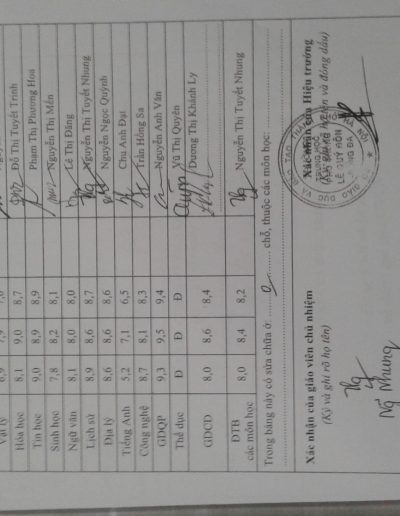 Vật lý 6,9 7,9 7,6
Hóa học 8,1 9,0 8,7 Đỗ Thị Tuyết Trinh
Tin học 9,0 8,9 8,9 Phạm Thị Phương Hoa
Sinh học 7,8 8,2 8,1 Nguyễn Thị Mến
Ngữ văn 8,1 8,0 8,0 Lê Thị Đăng
Lịch sử 8,9 8,6 8,7 Nguyễn Thị Tuyết Nhung
Địa lý 8,6 8,6 8,6 Nguyễn Ngọc Quỳnh
Tiếng Anh 5,2 7,1 6,5 Chu Anh Đại
Công nghệ 8,7 8,1 8,3 Trần Hồng Sa
GDQP 9,3 9,5 9,4 Nguyễn Anh Văn
Thể dục Đ Đ Đ Vũ Thị Quyên
GDCD 8,0 8,6 8,4 Dương Thị Khánh Ly
ĐTB các môn học 8,0 8,4 8,2 Nguyễn Thị Tuyết Nhung
Trong bảng này có sửa chữa ở: 0 chỗ, thuộc các môn học:
Xác nhận của giáo viên chủ nhiệm
(Ký và ghi rõ họ tên)
Ng Nhung
Xác nhận của Hiệu trưởng
TRUNG HỌC
LÊ QUÝ ĐÔN